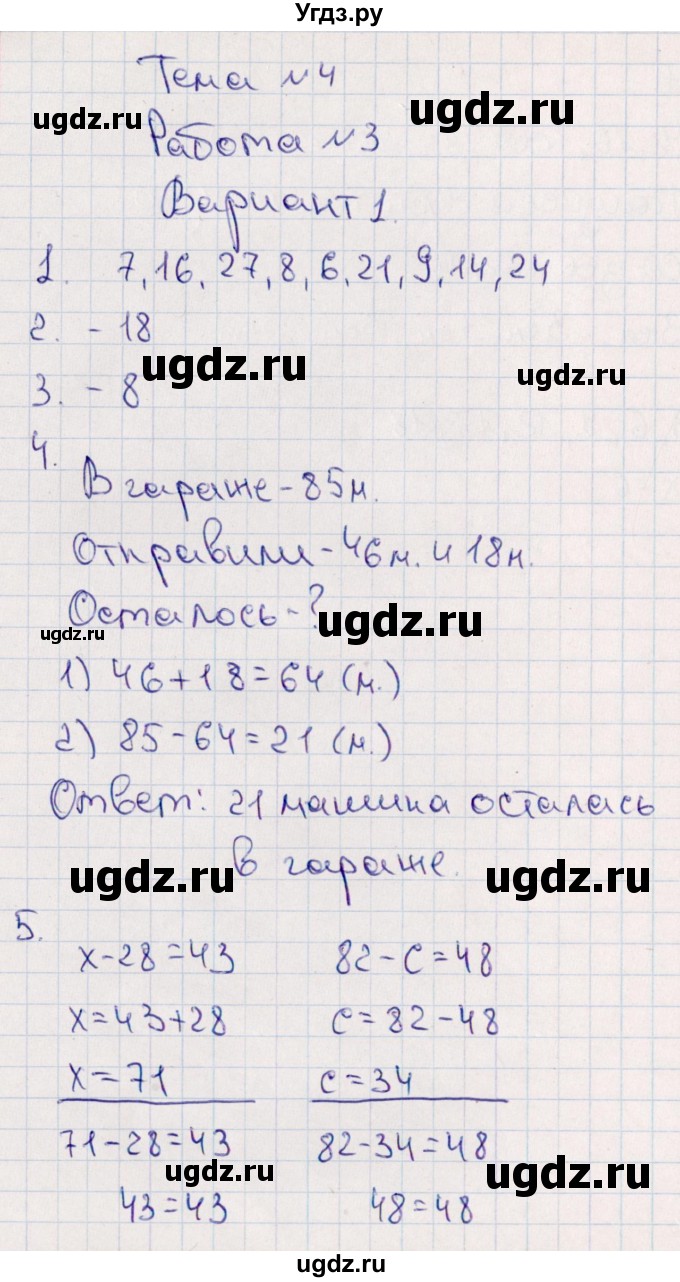 Угдз.ру
Тема №4
ugdz.ru
ugdz.ru
Работа №3
Вариант 1.
1. 7, 16, 27, 8, 6, 21, 9, 14, 24
2. - 18
ugdz.ru
ugdz.ru
3. - 8
4.
В гараже - 85 м.
Отправили - 46 м. и 18 м.
Осталось - ?
ugdz.ru
ugdz.ru
1) 46+18=64 (м.)
2) 85-64=21 (м.)
Ответ: 21 машина осталась
в гараже.
ugdz.ru
ugdz.ru
5.
x-28=43 82-c=48
x=43+28 c=82-48
x=71 c=34
71-28=43 82-34=48
ugdz.ru
ugdz.ru
43=43 48=48
ugdz.ru